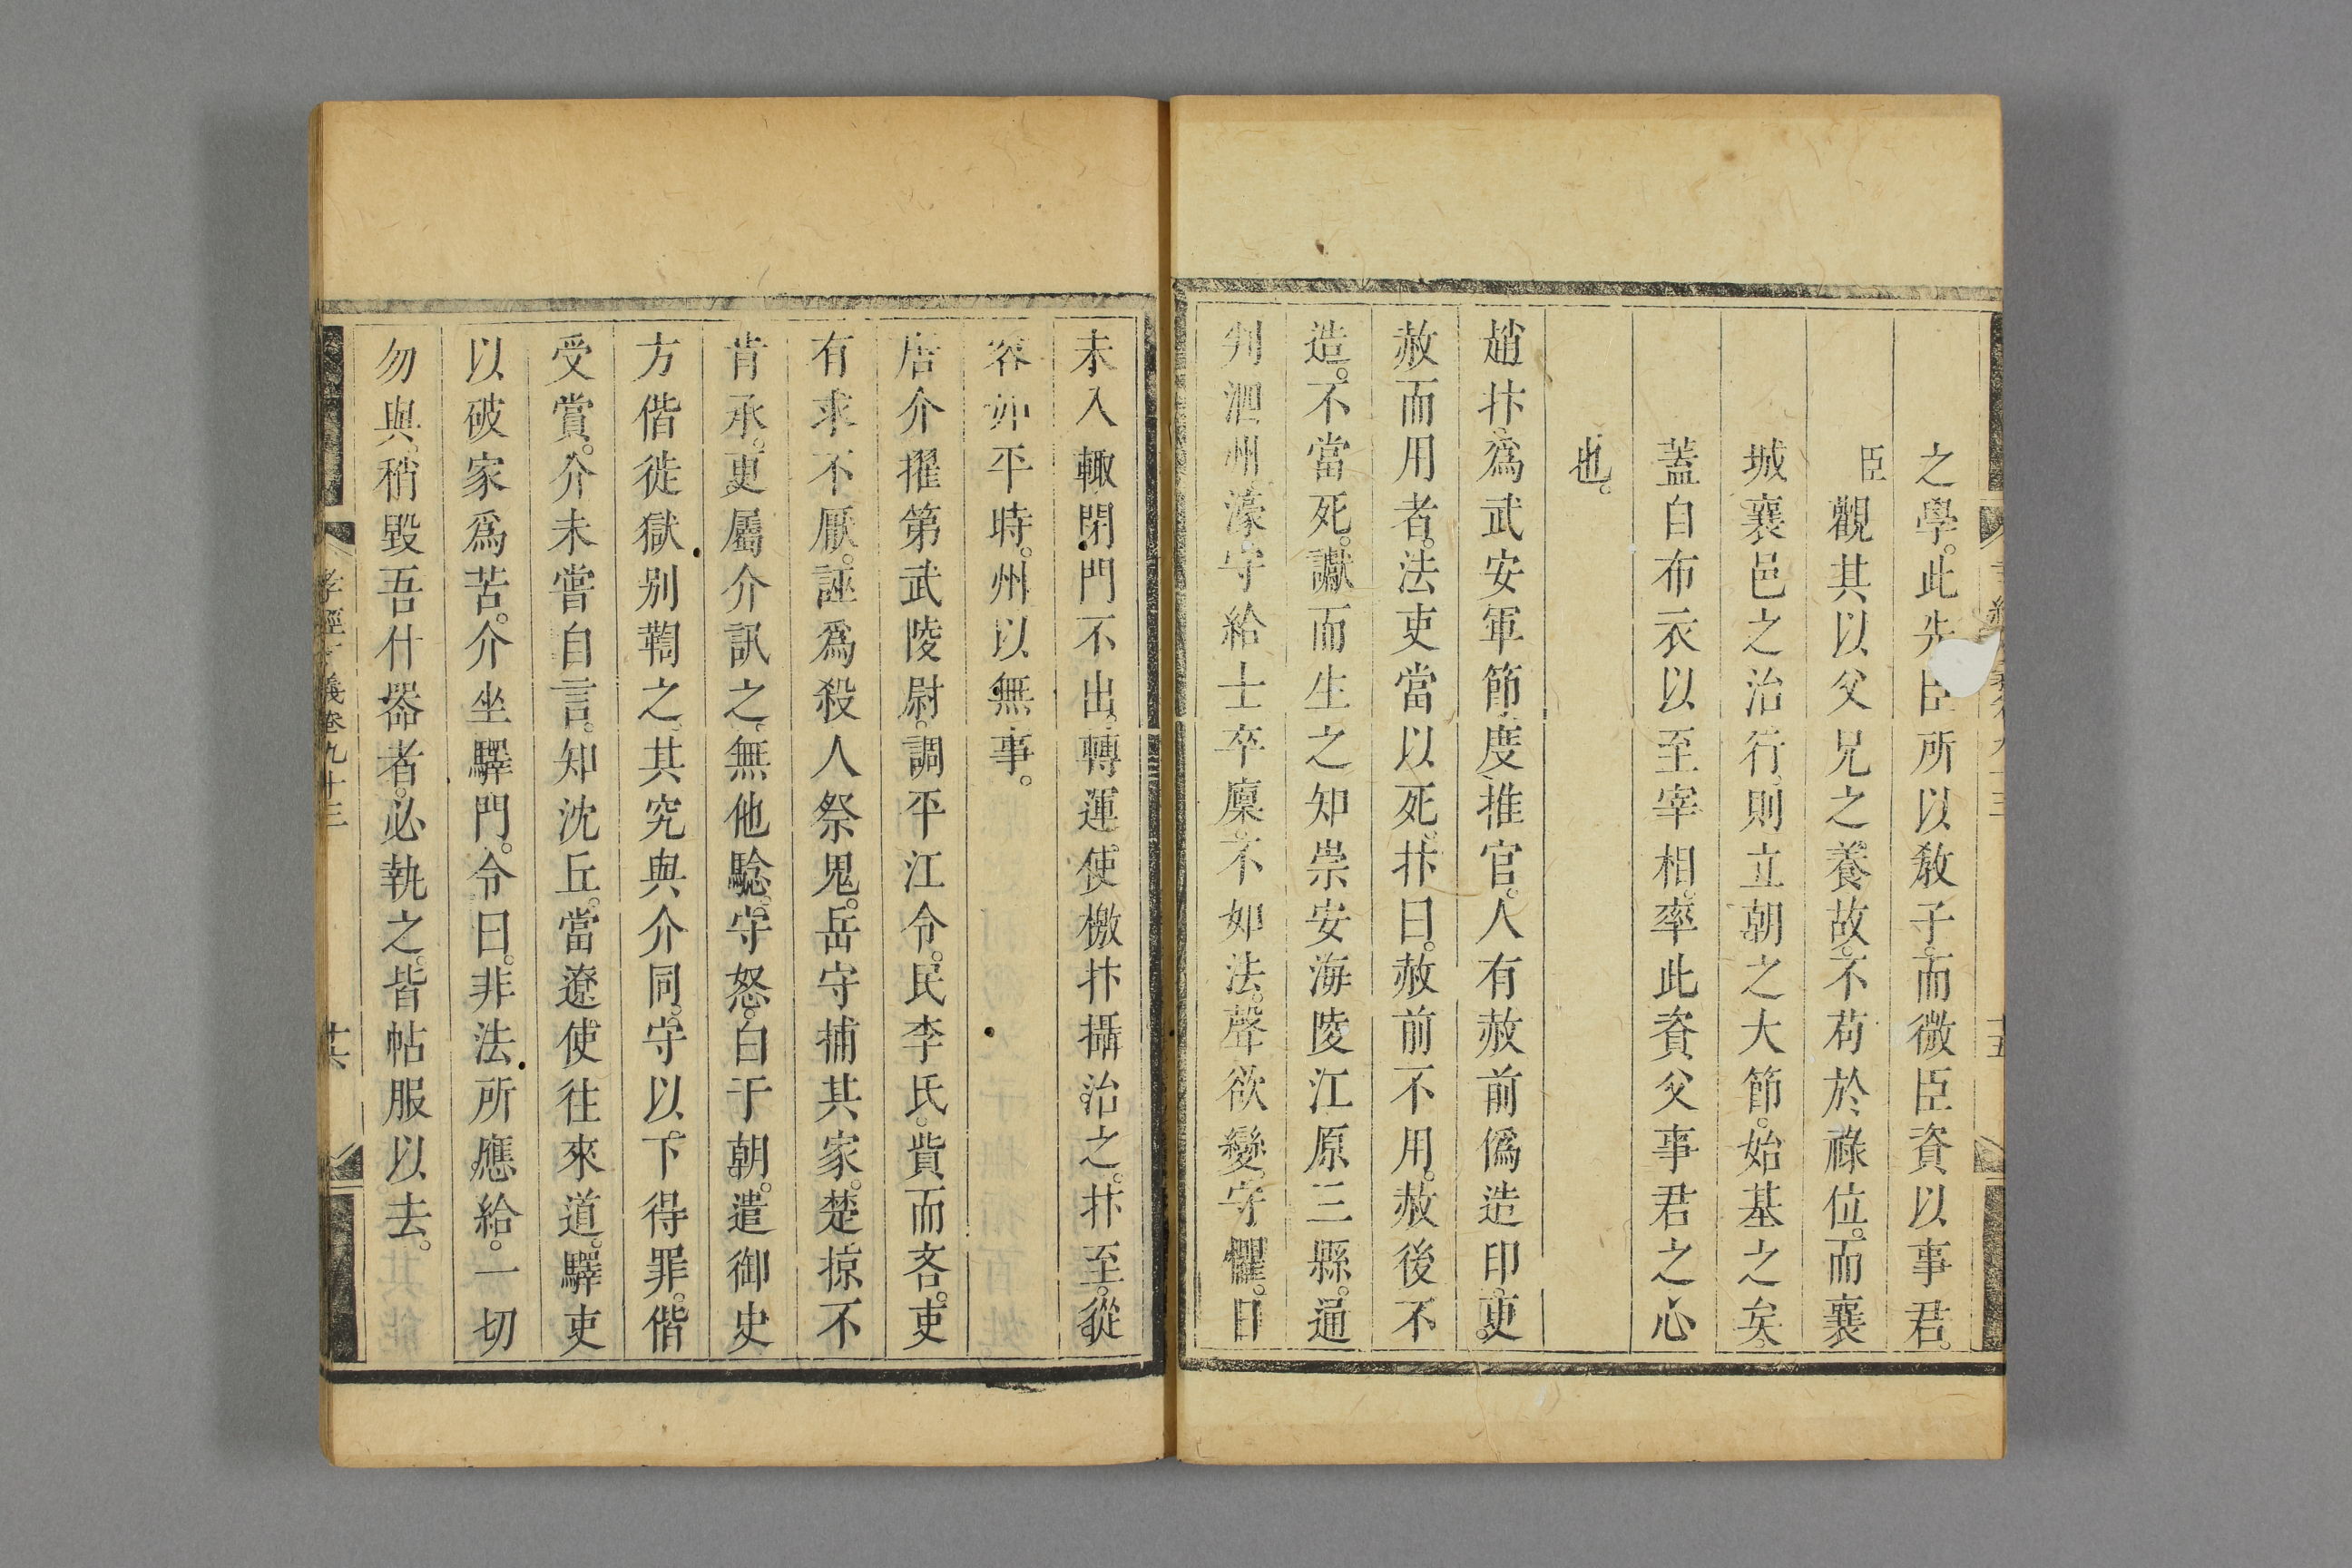 之學。此先臣所以教子。而微臣資以事君。
臣觀其以父兄之養。故不苟於祿位。而襄
城襄邑之治行。則立朝之大節。始基之矣。
蓋自布衣以至宰相。率此資父事君之心
也。
趙抃為武安軍節度推官。人有赦前偽造印。更
赦而用者。法吏當以死。抃曰。赦前不用。赦後不
造。不當死。讞而生之。知崇安海陵江原三縣。通
判泗州。濠守給士卒廩。不如法。聲欲變。守懼。日
未入輒閉門不出。轉運使檄抃攝治之。抃至。從
容如平時。州以無事。
唐介擢第武陵尉。調平江令。民李氏。貲而吝。吏
有求不厭。誣為殺人祭鬼。岳守捕其家。楚掠不
肯承。更屬介訊之。無他驗。守怒。白于朝。遣御史
方偕徙獄別鞫之。其究與介同。守以下得罪。偕
受賞。介未嘗自言。知沈丘。當遼使往來道。驛吏
以破家為苦。介坐驛門。令曰。非法所應給。一切
勿與。稍毀吾什器者。必執之。皆帖服以去。
孝經衍義卷九十三
十六